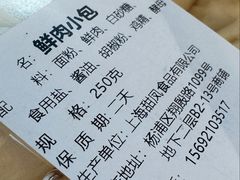 名：鲜肉小包
料：面粉、鲜肉、白砂糖
酱油、胡椒粉、鸡精、酵母
配 食用盐
规格：250克
保质期：二天
生产单位：上海甜凤食品有限公司
地址：杨浦区翔殷路1099号
地下二层B2-13号商铺
15692103317